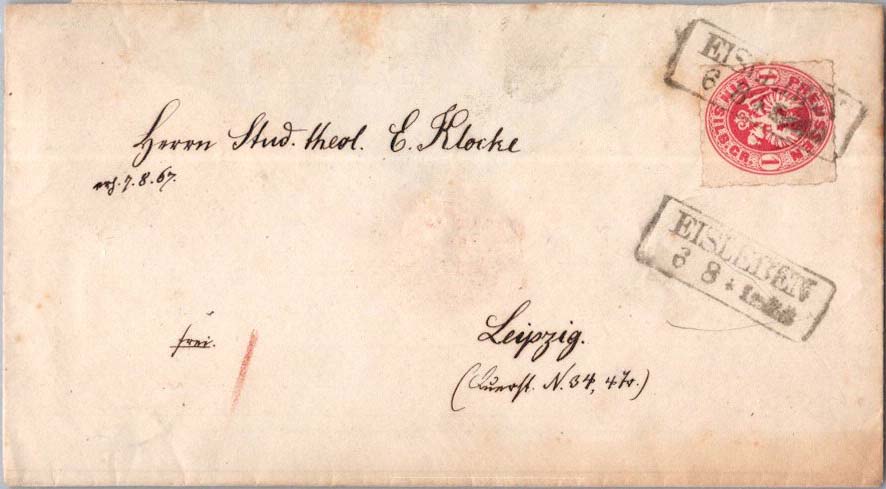 EISLEBEN
6 8
PREUSSEN
1 SILB. GR. 1
Herrn Stud. theol. E. Klocke
erh. 7. 8. 67.
EISLEBEN
6 8 *
frei.
Leipzig.
(Querst. N. 34, 4Tr.)